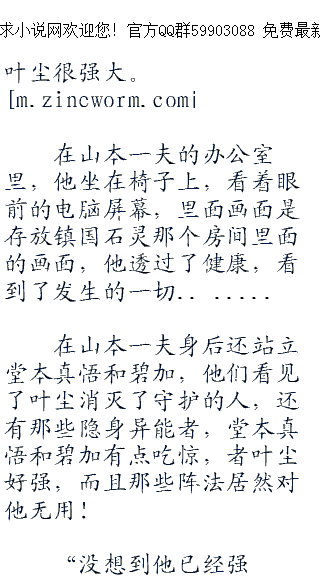 求小说网欢迎您! 官方QQ群59903088 免费最新
叶尘很强大。
[m.zincworm.com|
在山本一夫的办公室
里，他坐在椅子上，看着眼
前的电脑屏幕，里面画面是
存放镇国石灵那个房间里面
的画面，他透过了健康，看
到了发生的一切.. ......
在山本一夫身后还站立
堂本真悟和碧加，他们看见
了叶尘消灭了守护的人，还
有那些隐身异能者，堂本真
悟和碧加有点吃惊，者叶尘
好强，而且那些阵法居然对
他无用！
“没想到他已经强